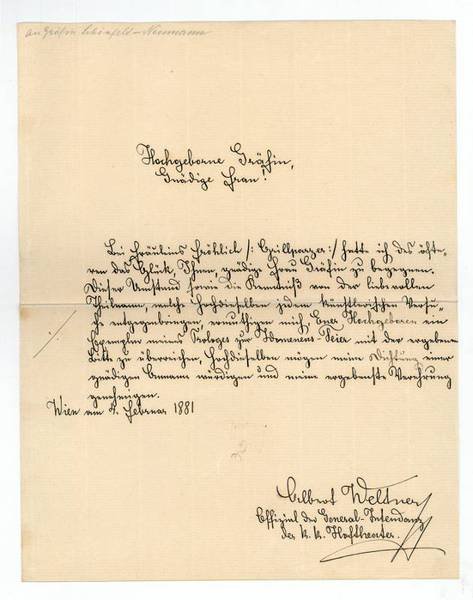 An Gräfin Schönfeld-Neumann
Hochgeborne Gräfin,
Gnädige Frau!
Bei Fräuleins Fröhlich /: Grillparzer :/ hatte ich des öfte-
ren das Glück, Ihnen, gnädige Frau Gräfin zu begegnen.
Dieser Umstand sowie die Kenntniß von der liebevollen
Theilname, welche Hochdieselben jedem künstlerischen Versu-
che entgegenbringen, ermuthigen mich, Euer Hochgeboren ein
Exemplar meines Prologes zur -Feier mit der ergebenen
Bitte zu überreichen, Hochdieselben mögen meine Dichtung einer
gnädigen Annahme würdigen und meine ergebenste Verehrung
genehmigen.
Wien am 4. Februar 1881
Albert Weltner
Offizial der General-Intendanz
der k. k. Hoftheater.